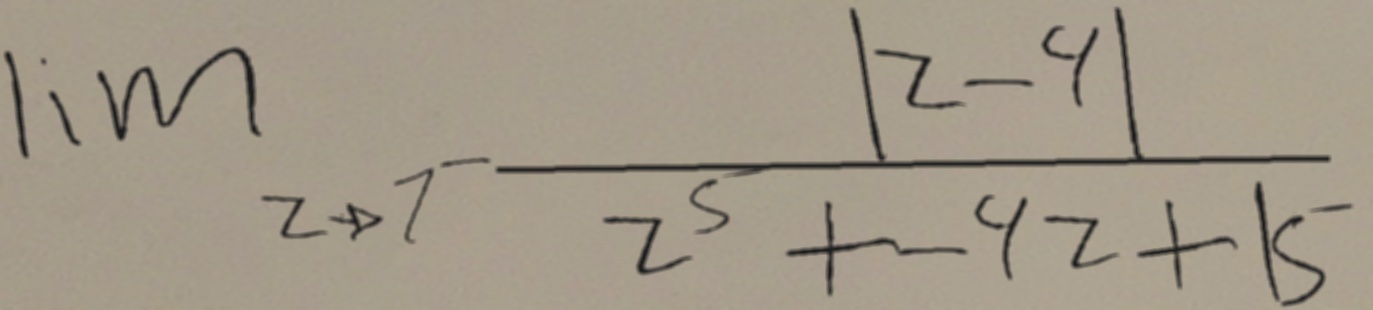 lim z→7⁻ |z-4| / z⁵ + -4z + 15